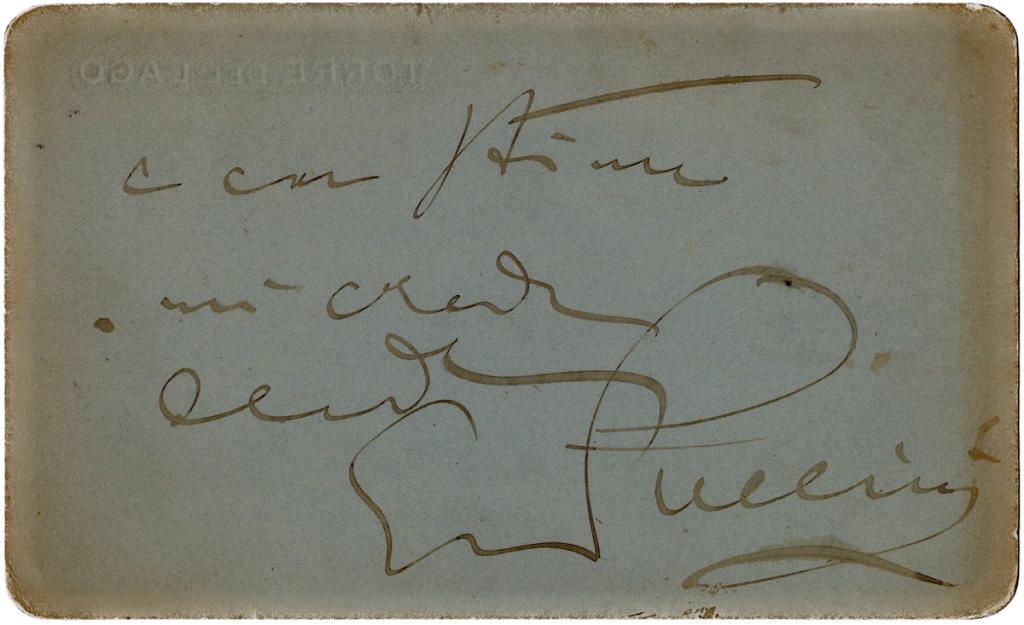 TORRE DEL LAGO
e con stima
mi creda
G Puccini